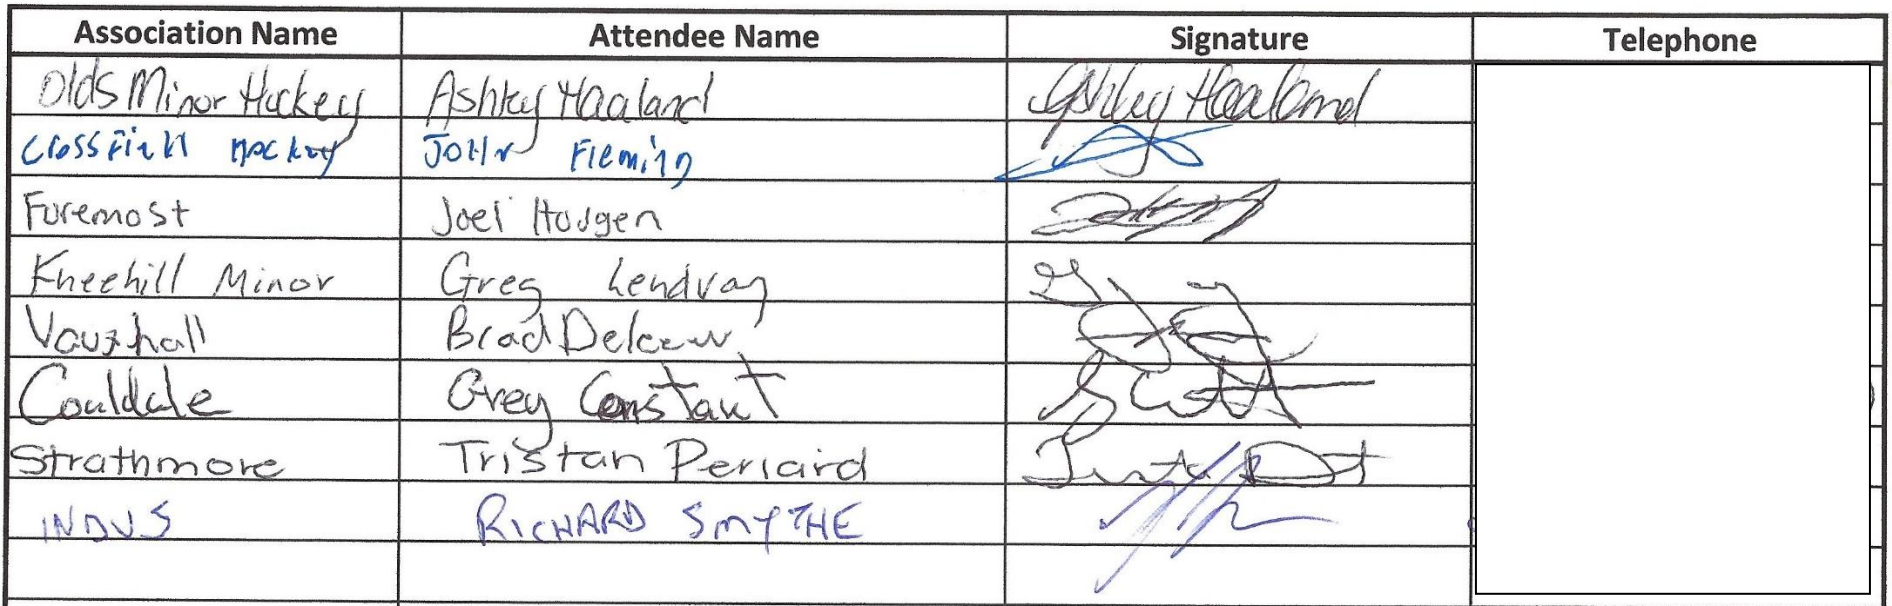 Association Name Attendee Name Signature Telephone
Olds Minor Hockey Ashley Haaland Ashley Haaland
Crossfield Hockey John Fleming
Foremost Joel Hougen
Kneehill Minor Greg Lendvay
Vauxhall Brad Deleeuw
Couldale Greg Constant
Strathmore Tristan Periard
INDUS RICHARD SMYTHE